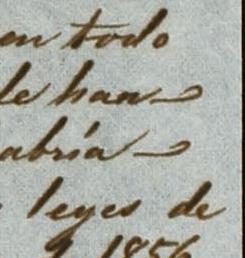 en todo
le han
abría
leyes de
1856